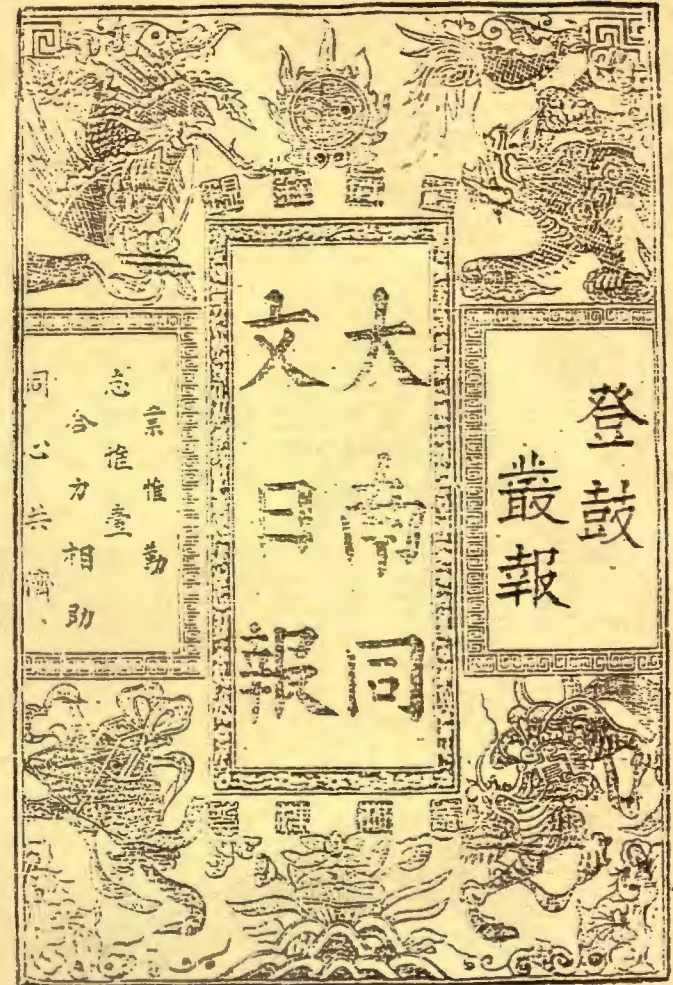 登鼓
叢報
大南同
文日報
業惟勤
志惟壹
合力相助
同心共濟